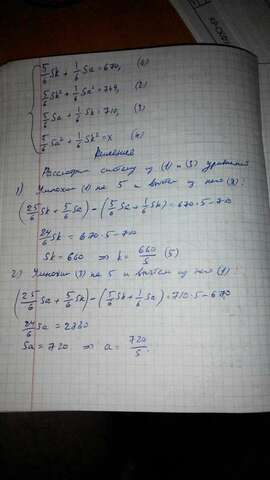 5/6 Sk + 1/6 Sa = 670, (1)
5/6 Sk² + 1/6 Sa² = 749, (2)
5/6 Sa + 1/6 Sk = 710, (3)
5/6 Sa² + 1/6 Sk² = x (4)
Решение
Рассмотрим систему из (1) и (3) уравнений
1) Умножим (1) на 5 и вычтем из него (3):
(25/6 Sk + 5/6 Sa) - (5/6 Sa + 1/6 Sk) = 670·5-710
24/6 Sk = 670·5-710
Sk = 660 ⇒ k = 660/S (5)
2) Умножим (3) на 5 и вычтем из него (1):
(25/6 Sa + 5/6 Sk) - (5/6 Sk + 1/6 Sa) = 710·5-670
24/6 Sa = 2880
Sa = 720 ⇒ a = 720/S